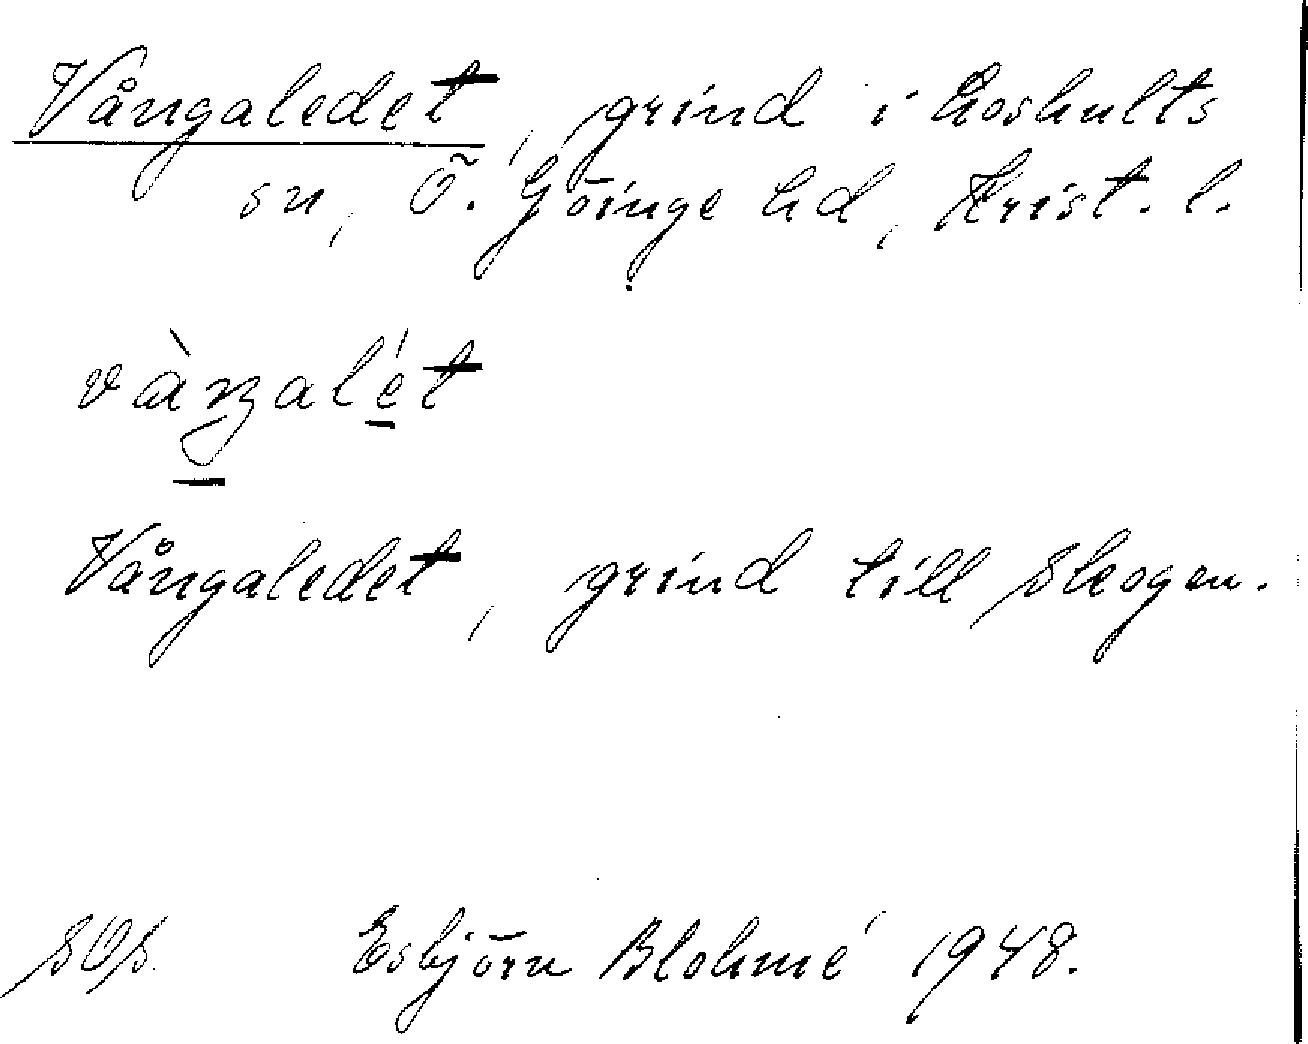 Vångaledet, grind i Loshults
sn, Ö. Göinge hd, Krist. l.
Vångaledet, grind till skogen.
Esbjörn Blohmé 1948.